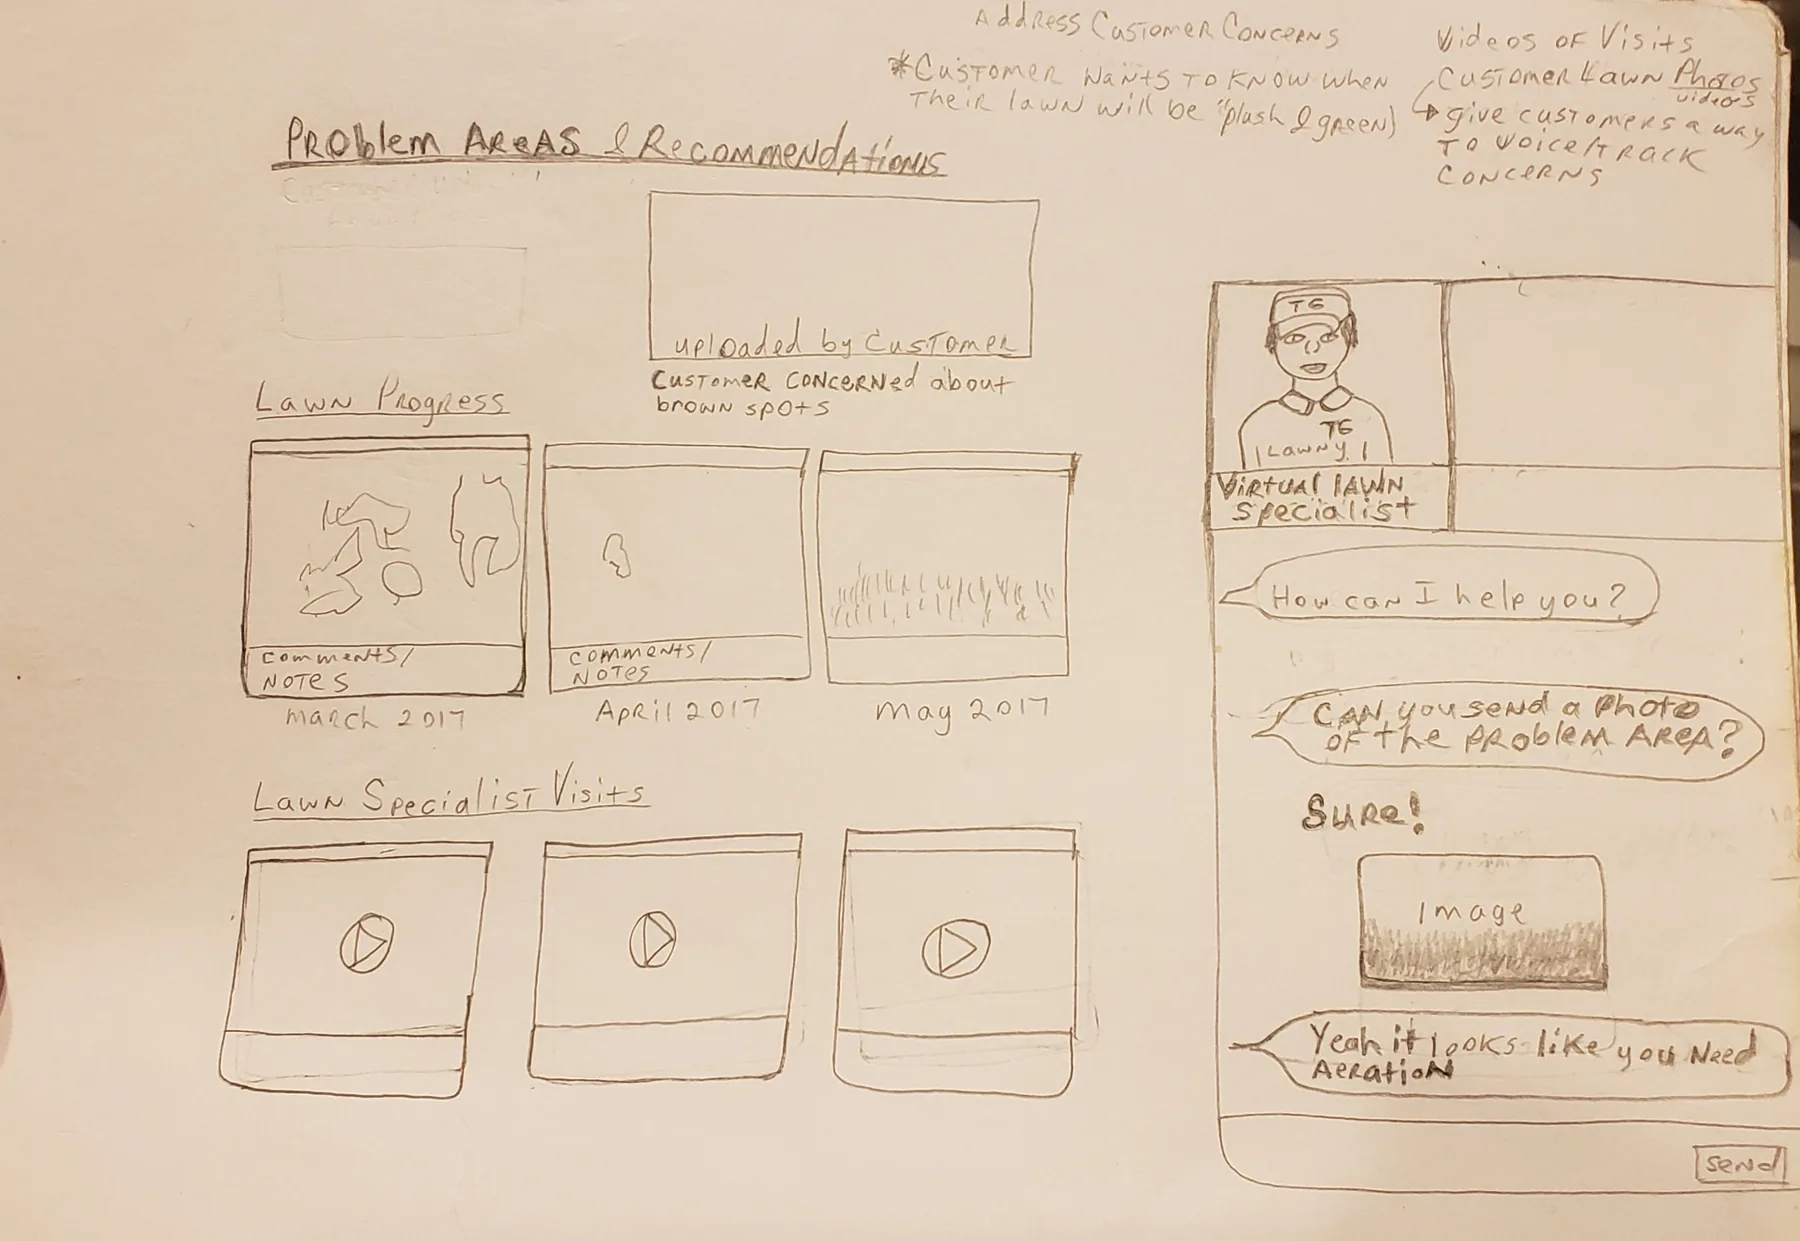 Address Customer Concerns
*Customer wants to know when
their lawn will be "plush & green)
Videos of Visits
Customer Lawn Photos
videos
give customers a way
to voice/track
concerns
Problem Areas & Recommendations
uploaded by Customer
Customer concerned about
brown spots
Lawn Progress
comments/
Notes
March 2017
comments/
Notes
April 2017
May 2017
Lawn Specialist Visits
TG
TG
Lawny
Virtual lawn
Specialist
How can I help you?
Can you send a Photo
of the problem Area?
Sure!
Image
Yeah it looks like you need
Aeration
Send